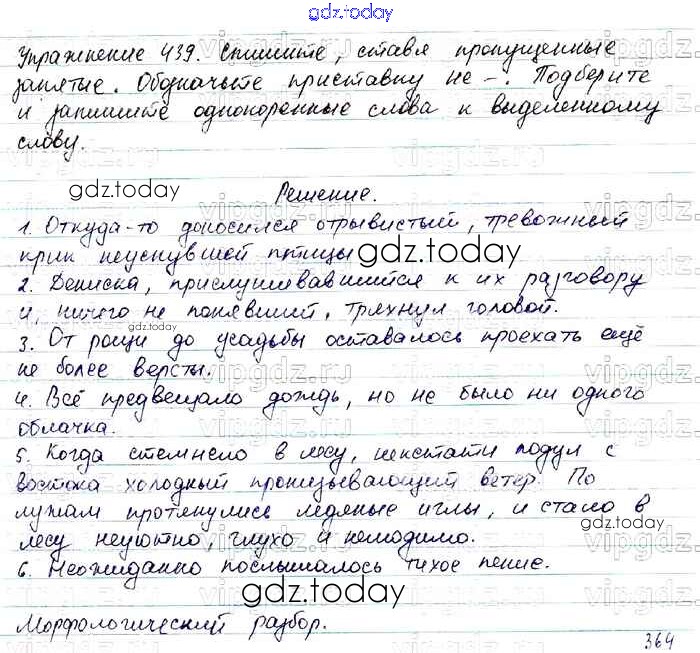 gdz.today
Упражнение 439. Спишите, ставя пропущенные
запятые. Обозначьте приставку не-. Подберите
и запишите однокоренные слова к выделенному
слову.
gdz.today
Решение.
1. Откуда-то доносился отрывистый, тревожный
крик неуснувшей птицы
gdz.today
2. Дениска, прислушивавшийся к их разговору
и, ничего не понявший, тряхнул головой.
gdz.today
3. От рощи до усадьбы оставалось проехать ещё
не более версты.
4. Всё предвещало дождь, но не было ни одного
облачка.
5. Когда стемнело в лесу, некстати подул с
востока холодный пронизывающий ветер. По
лужам протянулись ледяные иглы, и стало в
gdz.today
лесу неуютно, глухо и нелюдимо.
6. Неожиданно послышалось тихое пение.
gdz.today
Морфологический разбор.
364